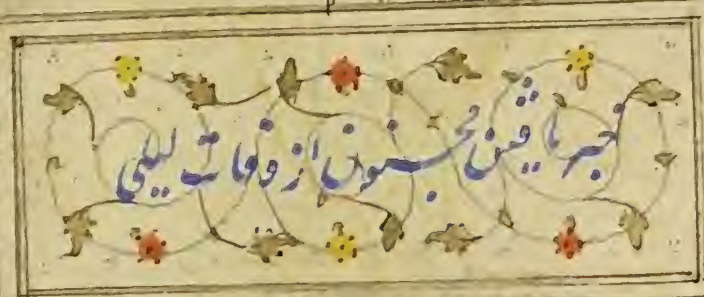 خبر یافتن مجنون از وفات لیلی